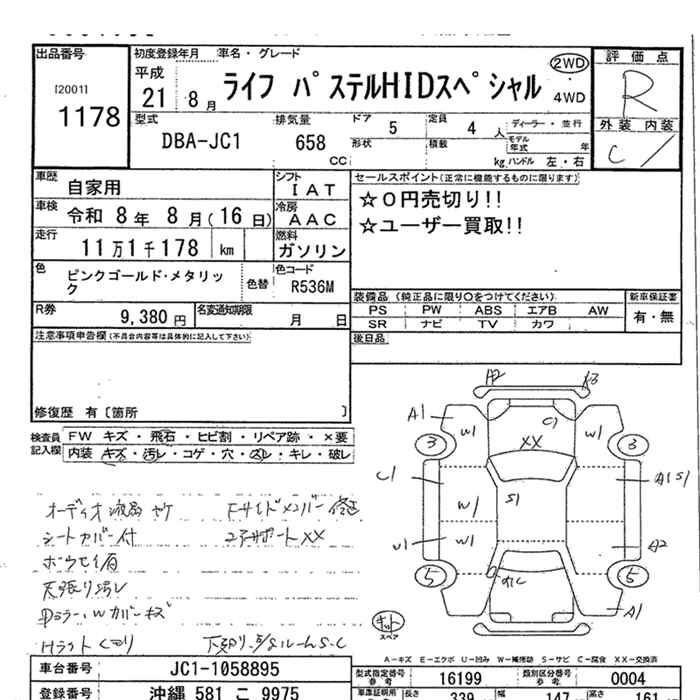 出品番号
[2001]
1178
初度登録年月 車名・グレード
平成
21 8月
ライフ パステルHIDスペシャル
2WD
4WD
評価点
R
外装 内装
C /
型式
DBA-JC1
排気量
658
CC
ドア
5
形状
定員
4 人
積載
kg
ディーラー・並行
モデル年式 年
ハンドル 左・右
車歴
自家用
シフト
IAT
車検
令和 8年 8月(16日)
冷房
AAC
走行
11万1千178 km
燃料
ガソリン
色
ピンクゴールド・メタリック
色替
色コード
R536M
R券
9,380 円
名変通知期限
月 日
セールスポイント(正常に機能するものに限ります)
☆0円売切り!!
☆ユーザー買取!!
装備品 (純正品に限り○をつけてください)
PS PW ABS エアB AW
SR ナビ TV カワ
新車保証書
有・無
後日品
注意事項申告欄(不具合内容等は具体的に記入して下さい)
修復歴 有〔箇所 〕
検査員記入欄
FW キズ・飛石・ヒビ割・リペア跡・×要
内装 キズ・汚レ・コゲ・穴・スレ・キレ・破レ
オーディオ液晶ヤケ
シートカバー付
天張り汚レ
Dミラー、Wカバーキズ
Hライトくもり
Fサイドメンバー修正
コアサポートXX
A2
A3
A1
W1
C1
W1
XX
3
3
C1
W1
S1
A1S1
U1
W1
A2
5
5
A1
キット
スペア
A-キズ E-エクボ U-凹み W-補修跡 S-サビ C-腐食 XX-交換済
車台番号
JC1-1058895
登録番号
沖縄 581 こ 9975
型式指定番号
参考
16199
類別区分番号
参考
0004
車車証明用
長さ
339
幅
147
高さ
161